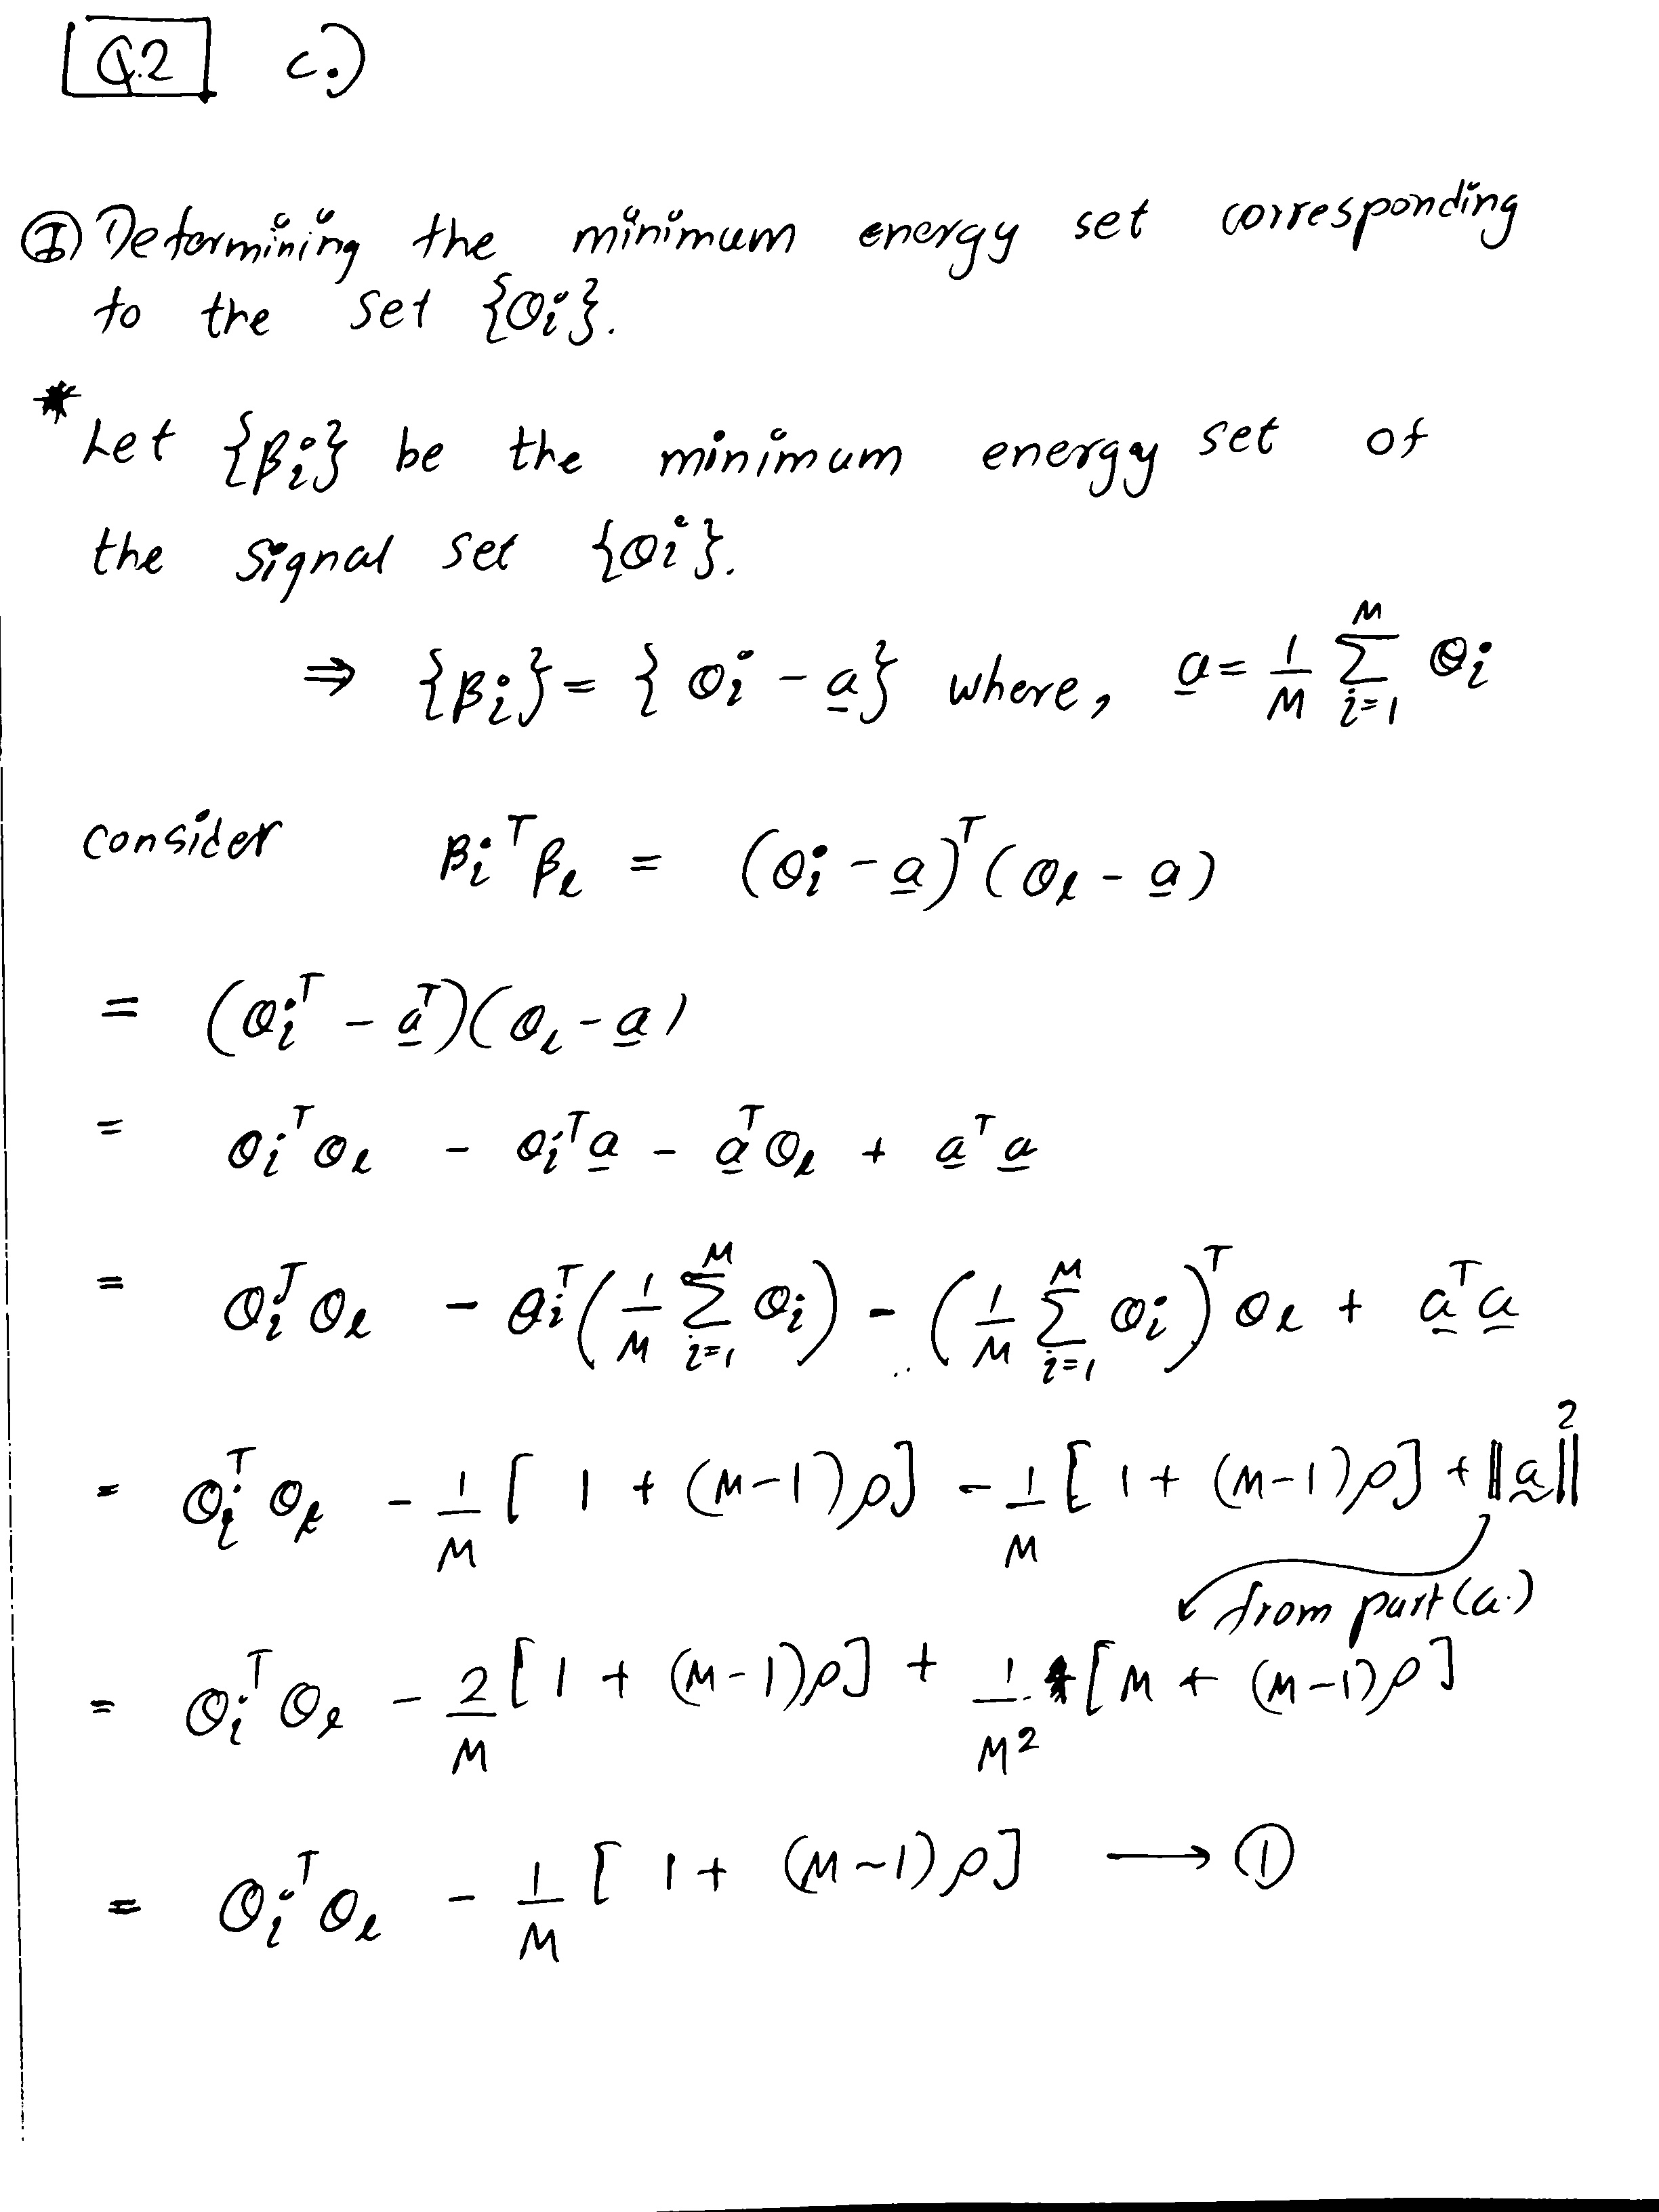 Q.2 c.)
Ⓘ Determining the minimum energy set corresponding
to the set {θi}.
* Let {βi} be the minimum energy set of
the signal set {θi}.
⇒ {βi} = { θi - a} where, a = 1/M Σ_{i=1}^{M} θi
consider βi^T βl = (θi - a)^T (θl - a)
= (θi^T - a^T)(θl - a)
= θi^T θl - θi^T a - a^T θl + a^T a
= θi^T θl - θi^T (1/M Σ_{i=1}^{M} θi) - (1/M Σ_{i=1}^{M} θi)^T θl + a^T a
= θi^T θl - 1/M [ 1 + (M-1)ρ] - 1/M [ 1 + (M-1)ρ] + ||a||^2
from part (a.)
= θi^T θl - 2/M [1 + (M-1)ρ] + 1/M^2 [M + (M-1)ρ]
= θi^T θl - 1/M [ 1 + (M-1)ρ] → ①